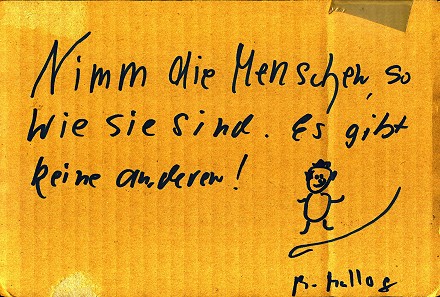 Nimm die Menschen, so
wie sie sind. Es gibt
keine anderen!